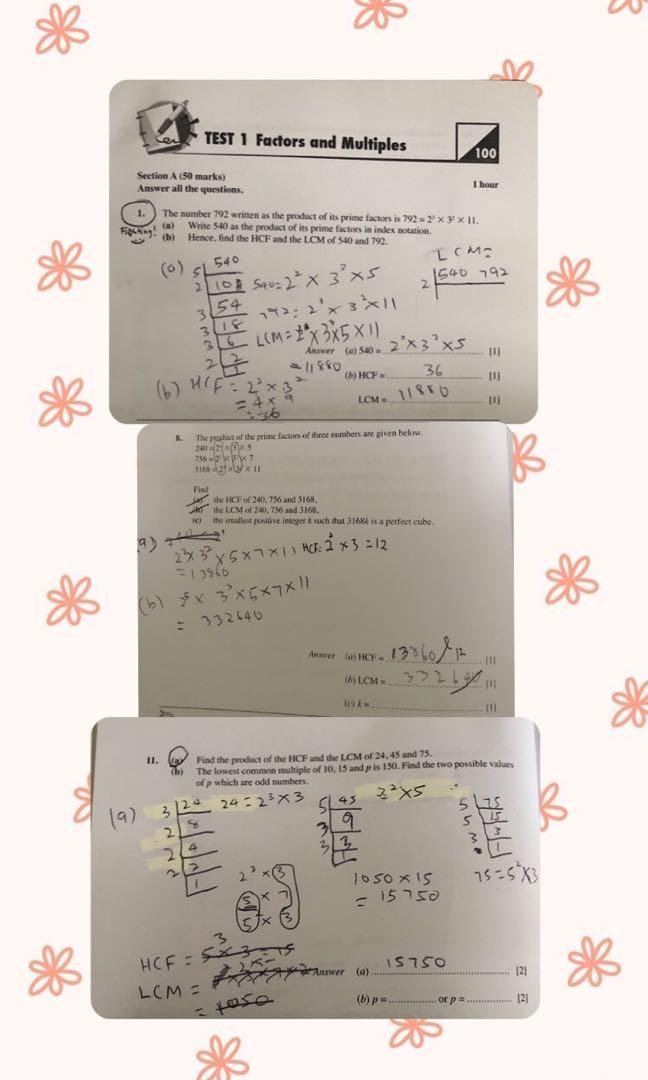 TEST 1 Factors and Multiples
100
Section A (50 marks)
1 hour
Answer all the questions.
1. The number 792 written as the product of its prime factors is 792 = 2³ × 3² × 11.
Fighting! (a) Write 540 as the product of its prime factors in index notation.
(b) Hence, find the HCF and the LCM of 540 and 792.
LCM=
(a) 5 540
2 540 792
2 108 540=2² × 3³ × 5
3 54 792= 2³ × 3² × 11
3 18
3 6 LCM= 2³ × 3³ × 5 × 11
2 2
1
= 11880
Answer (a) 540 = 2² × 3³ × 5 [1]
(b) HCF = 36 [1]
LCM = 11880 [1]
(b) HCF = 2² × 3²
= 4 × 9
= 36
8. The product of the prime factors of three numbers are given below.
240 = 2⁴ × 3 × 5
756 = 2² × 3³ × 7
3168 = 2⁵ × 3² × 11
Find
(a) the HCF of 240, 756 and 3168,
(b) the LCM of 240, 756 and 3168,
(c) the smallest positive integer k such that 3168k is a perfect cube.
a)
2² × 3² × 5 × 7 × 11 HCF: 2² × 3 = 12
= 13860
(b) 2⁵ × 3³ × 5 × 7 × 11
= 332640
Answer (a) HCF = 13860 12 [1]
(b) LCM = 332640 [1]
(c) k = [1]
11. (a) Find the product of the HCF and the LCM of 24, 45 and 75.
(b) The lowest common multiple of 10, 15 and p is 150. Find the two possible values
of p which are odd numbers.
(a) 3 24 24=2³ × 3
2 8
2 4
2 2
1
5 45 3² × 5
3 9
3 3
1
5 75
5 15
3 3
1
75=5² × 3
2³ × 3
5 × 7
5 × 3
1050 × 15
= 15750
3
HCF = 5 × 3 = 15
LCM =
= 1050
Answer (a) 15750 [2]
(b) p = or p = [2]